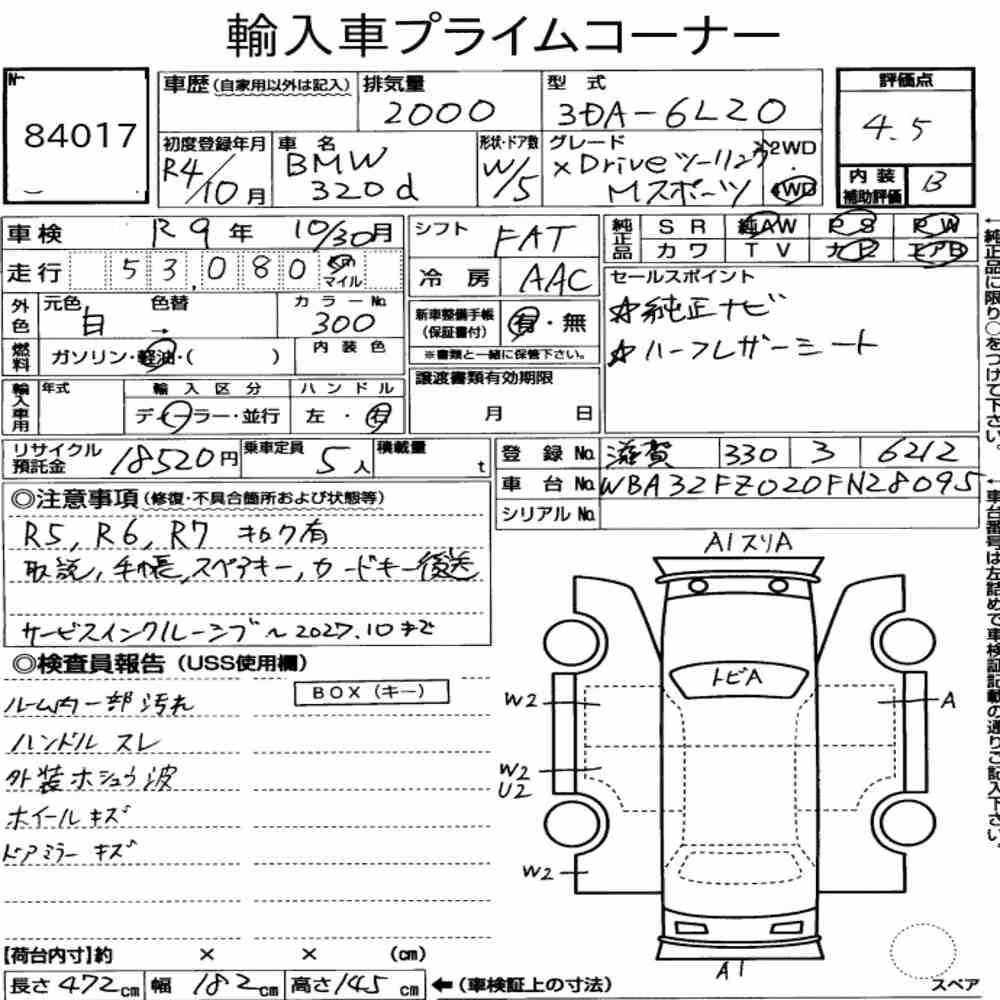 輸入車プライムコーナー
No
84017
車歴(自家用以外は記入)
排気量
2000
型式
3DA-6L20
評価点
4.5
初度登録年月
R4/10月
車名
BMW
320d
形状・ドア数
W/5
グレード
xDriveツーリング
Mスポーツ
2WD
・
4WD
内装
補助評価
B
車検
R9年 10/30月
シフト
FAT
純正品
SR 純AW PS PW
カワ TV ナビ エアB
走行
53,080 Km
マイル
冷房
AAC
セールスポイント
☆純正ナビ
☆ハーフレザーシート
外色
元色 色替
白 →
カラーNo.
300
新車整備手帳
(保証書付)
有・無
※書類と一緒に保管下さい。
燃料
ガソリン・軽油・( )
内装色
輸入車用
年式
輸入区分
ディーラー・並行
ハンドル
左・右
譲渡書類有効期限
月 日
リサイクル
預託金
18520円
乗車定員
5人
積載量
t
登録No.
滋賀 330 3 6212
車台No.
WBA32FZ020FN28095
シリアルNo.
◎注意事項(修復・不具合箇所および状態等)
R5, R6, R7 キロク有
取説, 手帳, スペアキー, カードキー後送
サービスインクルーシブ~2027.10まで
◎検査員報告(USS使用欄)
BOX(キー)
ルーム内一部汚れ
ハンドル スレ
外装ホシュウ波
ホイール キズ
ドアミラー キズ
A1スリA
トビA
W2
A
W2
U2
W2
A1
【荷台内寸】約 × × (cm)
長さ472cm 幅182cm 高さ145cm ←(車検証上の寸法)
スペア
←純正品に限り○をつけて下さい。
←車台番号は左詰めで車検証記載の通りご記入下さい。